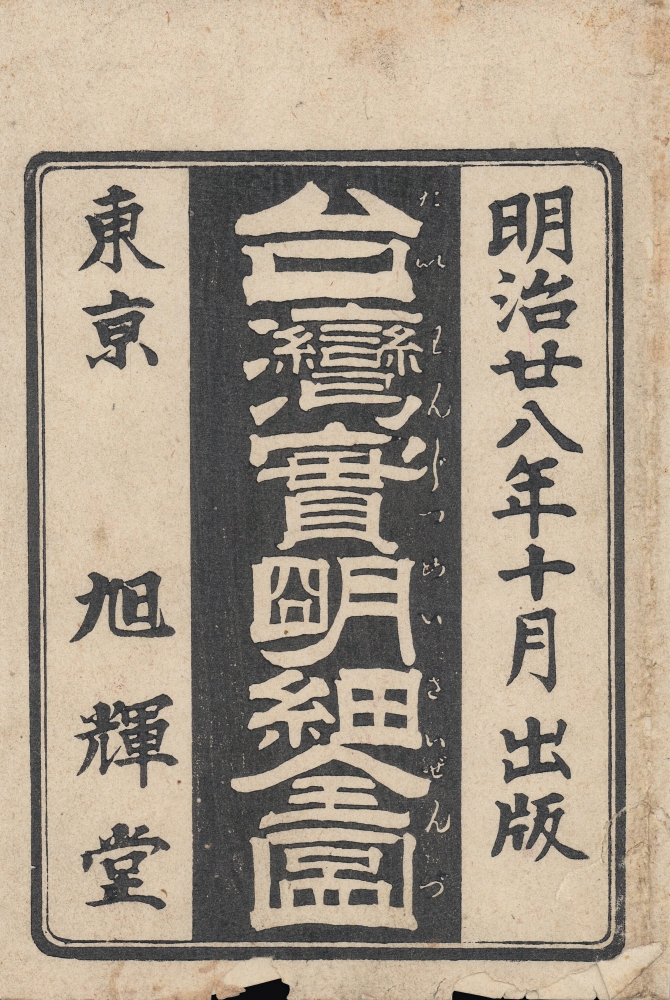 明治廿八年十月出版
台灣實明細全圖
たいわんじつめいさいぜんづ
東京 旭輝堂